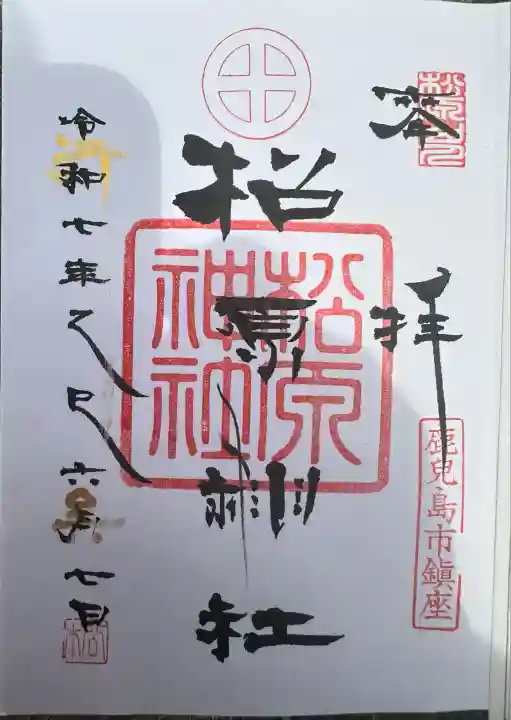 奉拝
鹿兒島市鎮座
松原神社
松原神社
令和七年乙巳六月七日